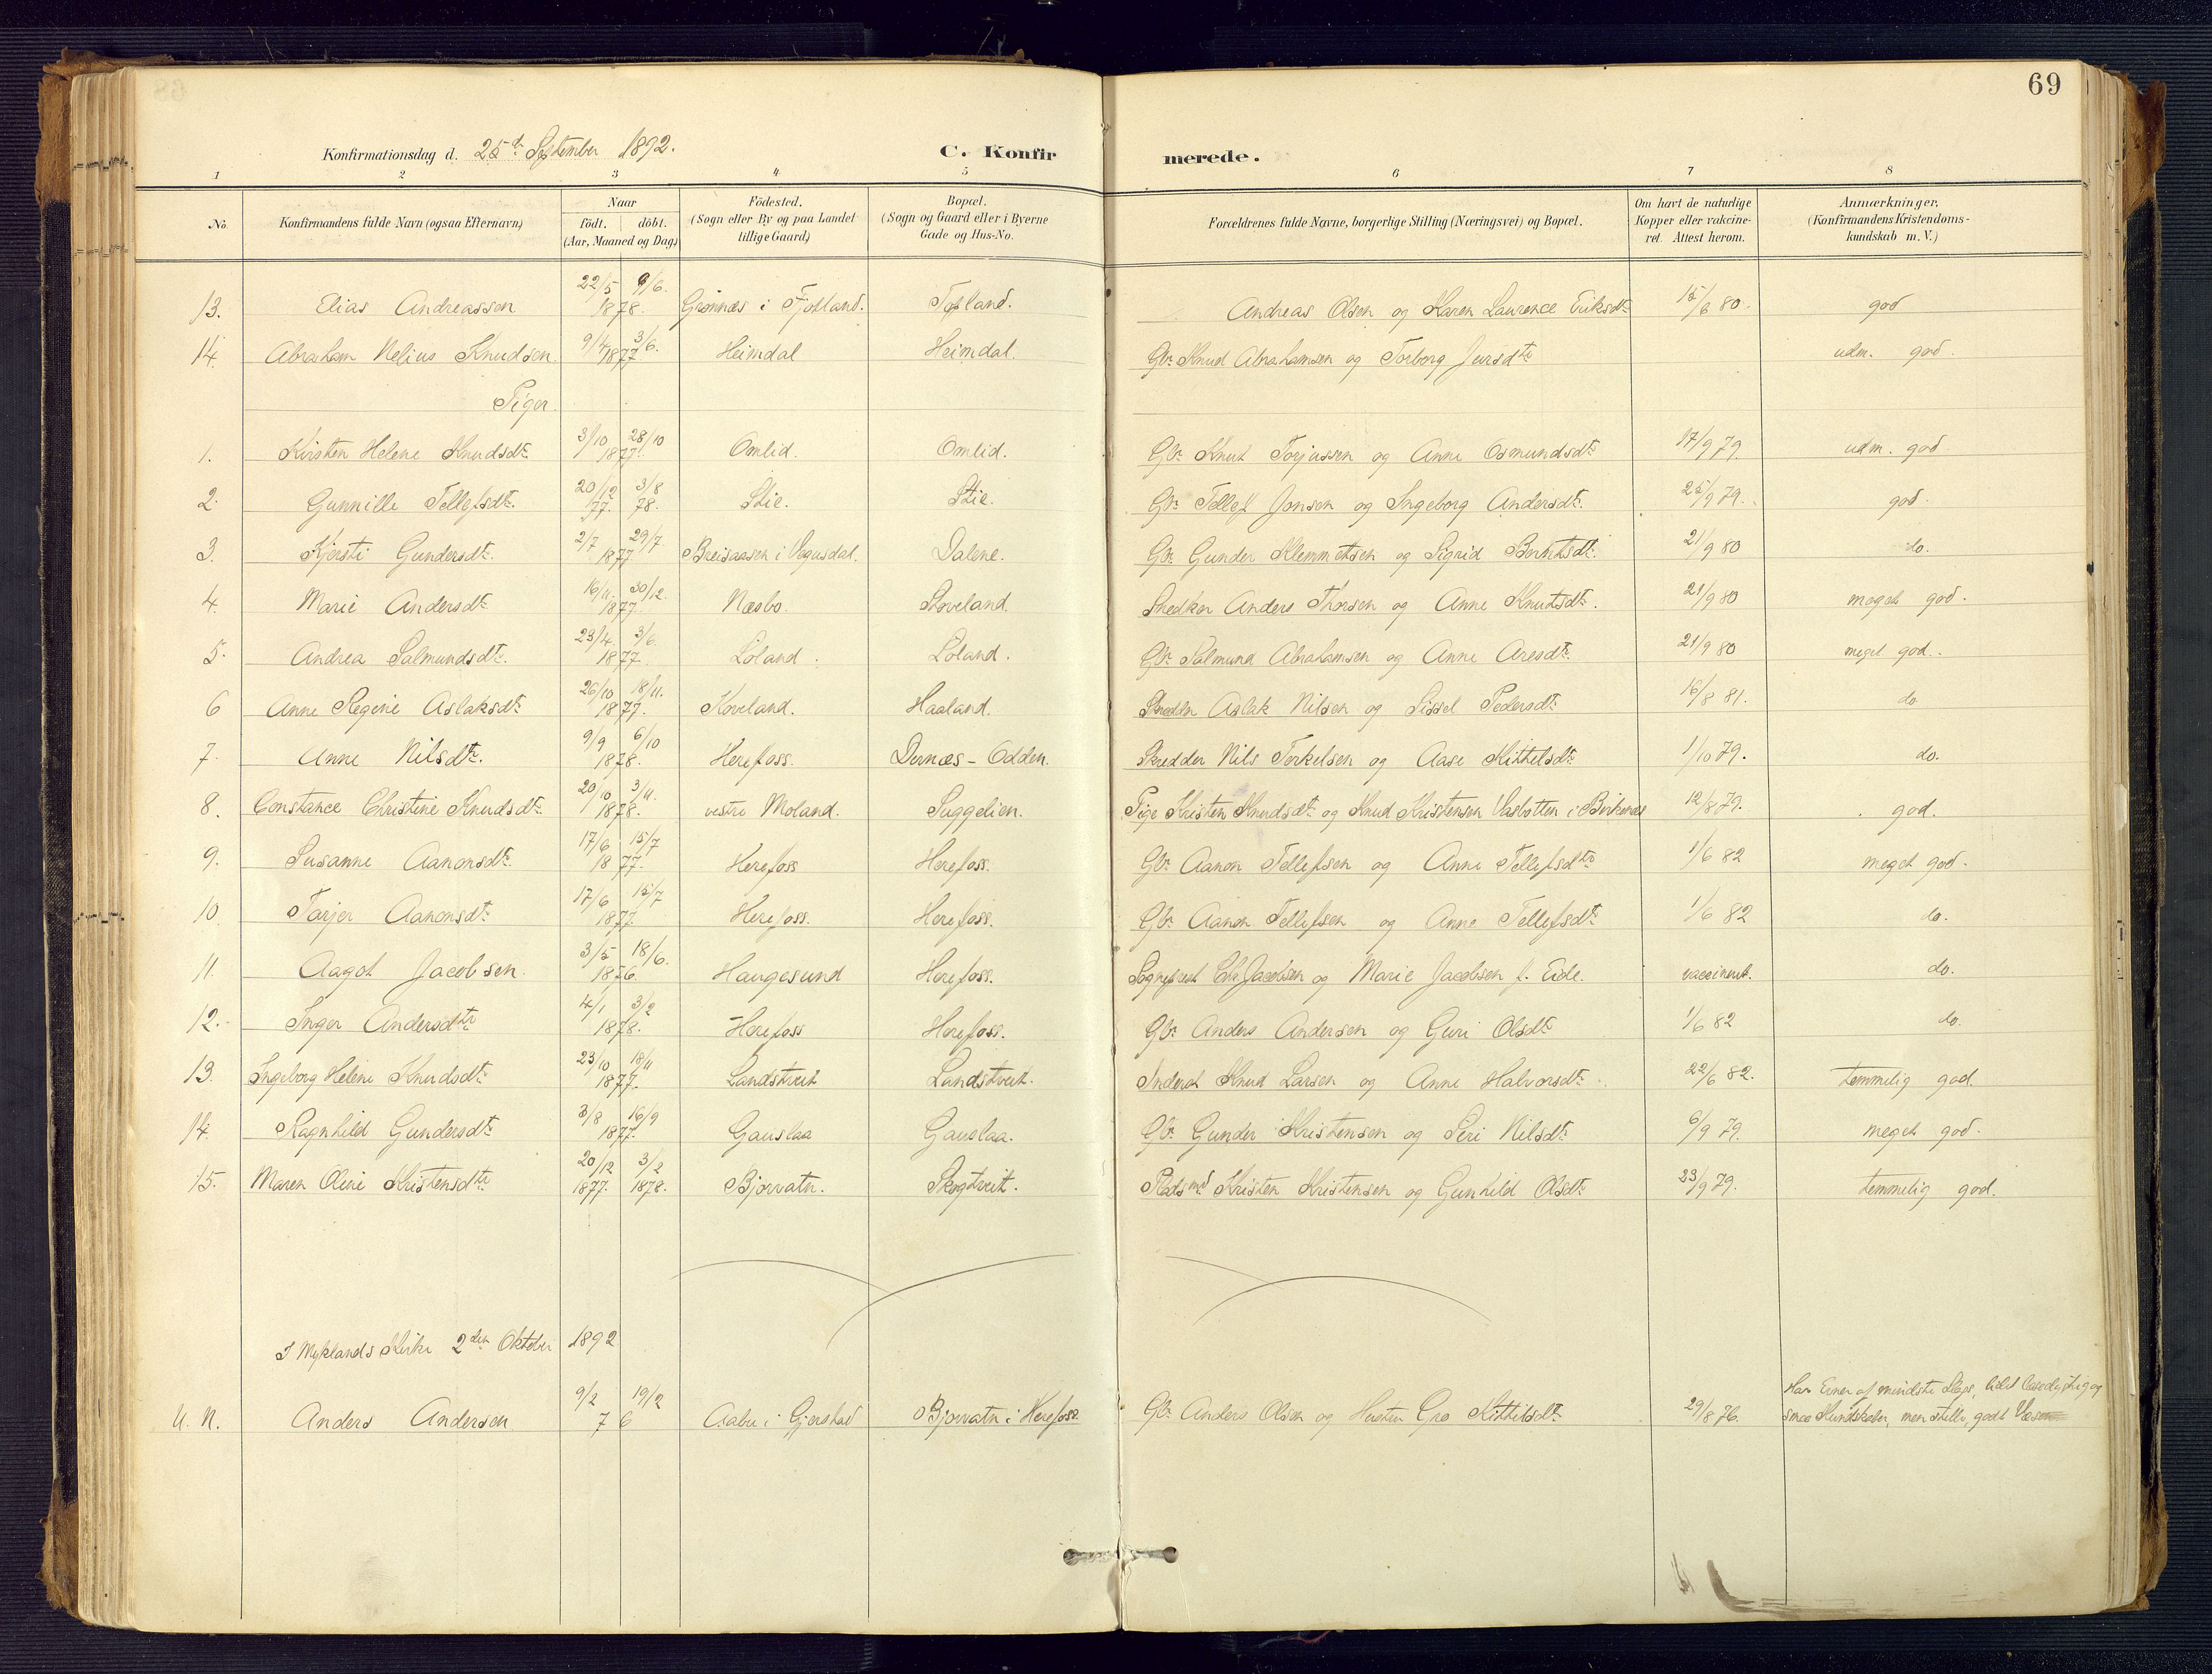 69
Konfirmationsdag d. 25de September 1892. C. Konfirmerede.
1 2 3 4 5 6 7 8
No. Konfirmandens fulde Navn (ogsaa Efternavn) Naar født. døbt. (Aar, Maaned og Dag) Födested. (Sogn eller By og paa Landet tillige Gaard) Bopæl. (Sogn og Gaard eller i Byerne Gade og Hus-No. Forældrenes fulde Navne, borgerlige Stilling (Næringsvei) og Bopæl. Om havt de naturlige Kopper eller vakcineret. Attest herom. Anmærkninger. (Konfirmandens Kristendomskundskab m. V.)
13. Elias Andreassen 22/5 9/6. 1878. Grønnæs i Topland. Andreas Olsen og Karen Laurence Eriksdtr 15/6 80. god
14. Abraham Nelius Knudsen. 9/4 3/6. 1877 Heimdal Heimdal. Gbr. Knud Abrahamsen og Torborg Jursdtr udm. god.
Piger.
1. Kirsten Helene Knudsdtr. 3/10 28/10 1877. Omlid. Omlid. Gbr. Knut Torjussen og Anne Osmundsdtr 17/9 79. udm. god.
2. Gunnille Tellefsdtr. 20/12 77. 3/8 78. Stie. Stie. Gbr. Tellef Jonsen og Ingeborg Andersdtr. 25/9 79. god.
3. Kjersti Gundersdtr. 2/7 29/7. 1877 Breisaasen i Vegusdal. Dalene. Gbr. Gunder Klemmetsen og Sigrid Berntsdtr. 21/9 80 do.
4. Marie Andersdtr. 16/11. 30/12. 1877. Næsbø. Støveland. Snedker Anders Thorsen og Anne Knutsdtr. 21/9 80 meget god.
5. Andrea Salmundsdtr. 23/4. 3/6. 1877. Løland. Løland. Gbr. Salmund Abrahamsen og Anne Aresdtr. 21/9 80 meget god.
6 Anne Regine Aslaksdtr. 26/10 18/11. 1877. Køveland. Haaland. Skredder Aslak Nilsen og Sissel Pedersdtr. 16/8 81. do.
7. Anne Nilsdtr. 9/9 6/10 1878. Herefoss. Dernæs-Odden. Skredder Nils Terkelsen og Aase Kittelsdtr. 1/10 79. do.
8. Constance Christine Knudsdtr. 20/10 3/11. 1878. vestre Moland. Suggelien. Pige Kristen Knudsdtr. og Knud Kristensen Vasbotten i Birkenes 12/8 79. god.
9. Susanne Aanonsdtr. 17/6 15/7 1877. Herefoss Herefoss. Gbr. Aanon Tellefsen og Anne Tellefsdtr 1/6 82 meget god.
10. Tarjer Aanonsdtr. 17/6 15/7 1877. Herefoss. Herefoss. Gbr. Aanon Tellefsen og Anne Tellefsdtr 1/6 82 do.
11. Aagot Jacobsen. 3/5 18/6. 1876. Haugesund Herefoss. Sognepræst Chr. Jacobsen og Marie Jacobsen f. Eide. vaccineret. do.
12. Inger Andersdtr 4/1 3/2 1878. Herefoss Herefoss. Gbr. Anders Andersen og Guri Olsdtr. 1/6 82 do.
13. Ingeborg Helene Knudsdtr. 23/10 18/11 1877. Landstveit Landstveit. Inderst Knud Larsen og Anne Halvorsdtr. 22/6 82. temmelig god.
14. Ragnhild Gundersdtr. 3/8 16/9 1877. Gauslaa Gauslaa. Gbr. Gunder Kristensen og Seri Nilsdtr. 6/9 79. meget god.
15. Maren Oline Kristensdtr 20/12 1877. 3/2 1878. Bjorvatn. Skogtveit. Pladsmd Kristen Kristensen og Gunhild Olsdtr 23/9 79. temmelig god.
I Myklands Kirke 2den Oktober 1892
U. N. Anders Andersen 9/2 19/2 76 Aabu i Gjerstad Bjorvatn i Herefoss Gbr. Anders Olsen og Hustru Gro Kittilsdtr 29/8 76. Har Evner af mindste Slags, lidt læselystig og
smaa Kundskaber, men stille, godt Væsen